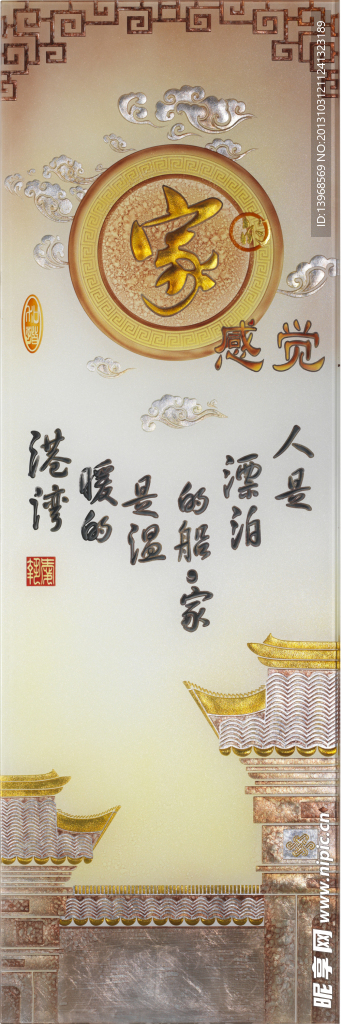 家的
感觉
人是
漂泊
的船·家
是温
暖的
港湾
ID:13968569 NO:20131031211241323189
昵享网 www.nipic.cn